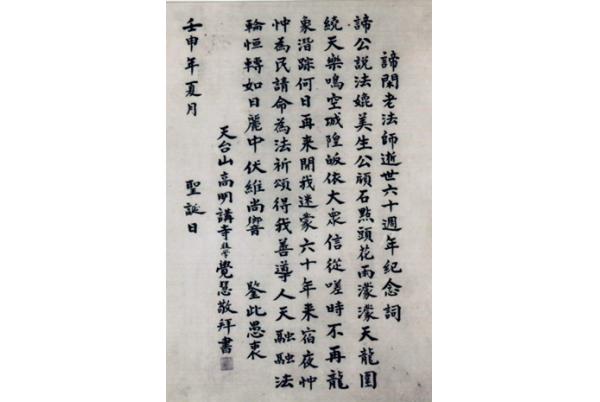 諦閑老法師逝世六十週年紀念詞
諦公説法媲美生公頑石點頭花雨濛濛天龍圍
繞天樂鳴空城隍皈依大衆信從嗟時不再龍
象潛踪何日再来開我迷蒙六十年来宿夜忡
忡為民請命為法祈頌得我善導人天融融法
輪恒轉如日麗中伏維尚饗 鑒此愚衷
天台山高明講寺覺慧敬拜書
壬申年夏月 聖誕日